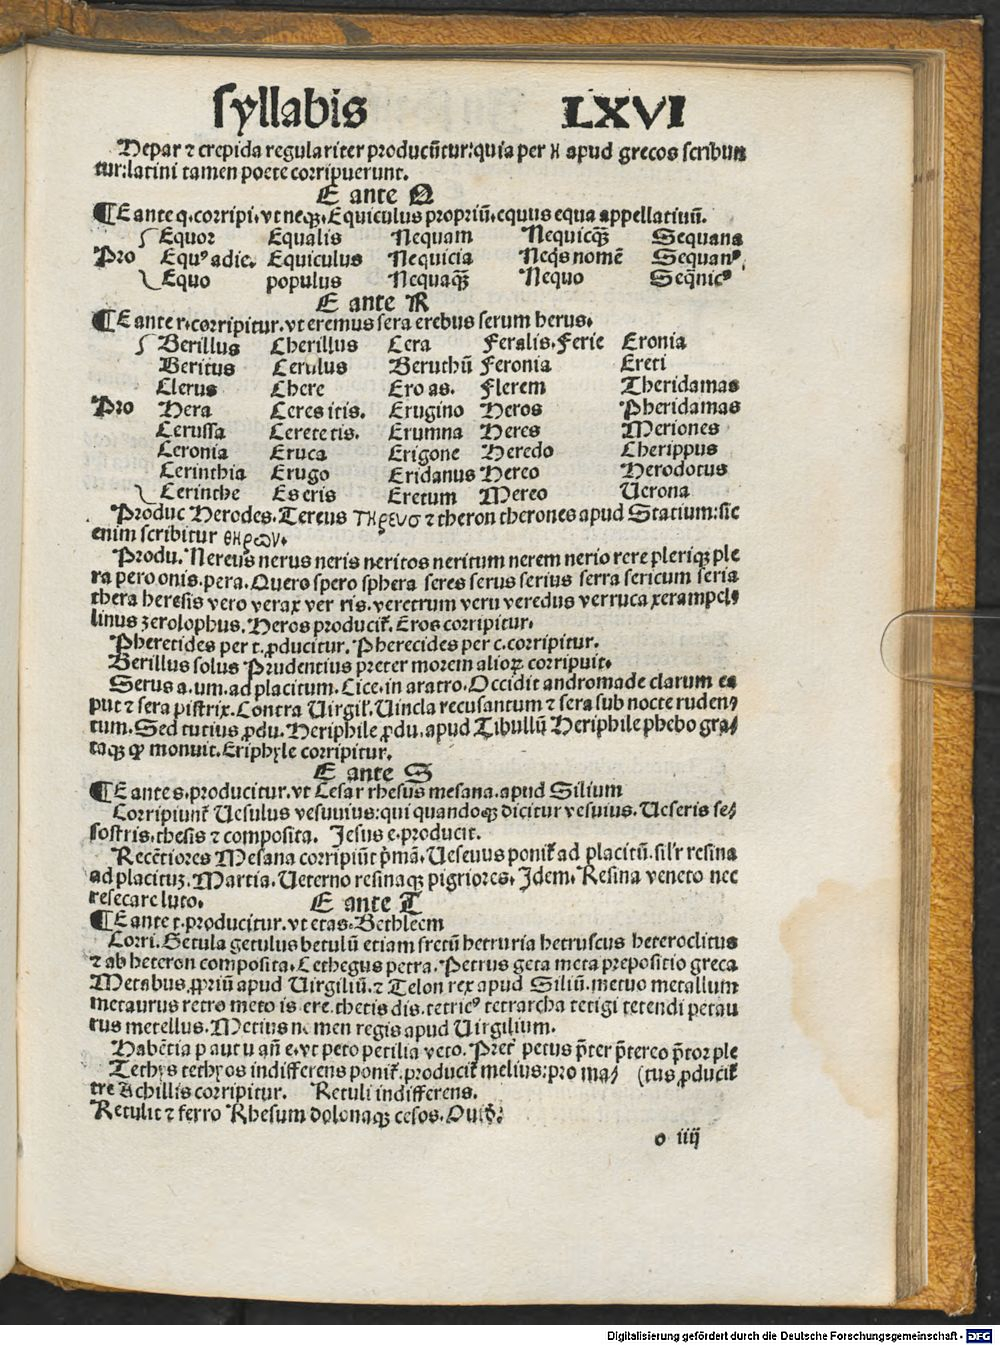 syllabis LXVI
Hepar ⁊ crepida regulariter producūtur: quia per H apud grecos scribun
tur: latini tamen poete corripuerunt.
E ante Q
¶ E ante q. corripi. vt neqꝫ. Equiculus propriū. equus equa appellatiuū.
Equor Equalis Nequam Nequicqꝫ̄ Sequana
Pro Equꝰ adie. Equiculus Nequicia Neq̄s nomē Sequanꝰ
Equo populus Nequaqꝫ̄ Nequo Seq̄nicꝰ
E ante R
¶ E ante r. corripitur. vt eremus sera erebus serum herus.
Berillus Cherillus Cera Feralis. Ferie Eronia
Beritus Cerulus Beruthū Feronia Ereti
Clerus Chere Ero as. Flerem Theridamas
Pro Hera Ceres itis. Erugino Heros Pheridamas
Cerussa Cerete tis. Erumna Heres Meriones
Ceronia Eruca Erigone Heredo Cherippus
Cerinthia Erugo Eridanus Hereo Herodotus
Cerinthe Es eris Eretum Mereo Verona
Produc Herodes. Tereus τηρευσ ⁊ theron therones apud Statium: sic
enim scribitur θηρων.
Produ. Nereus nerus neris neritos neritum nerem nerio rere pleriqꝫ ple
ra pero onis. pera. Quero spero sphera seres serus serius serra sericum seria
thera heresis vero verax ver ris. veretrum veru veredus verruca xerampel⸗
linus zerolophus. Heros producit̄. Eros corripitur.
Pheretides per t. ꝓducitur. Pherecides per c. corripitur.
Berillus solus Prudentius preter morem alioꝝ corripuit.
Serus a. um. ad placitum. Cice. in aratro. Occidit andromade clarum ca
put ⁊ sera pistrix. Contra Virgil̓. Vincla recusantum ⁊ sera sub nocte ruden⸗
tum. Sed tutius ꝓdu. Heriphile ꝓdu. apud Tibullū Heriphile phebo gra⸗
taqꝫ ꝙ monuit. Eriphyle corripitur.
E ante S
¶ E ante s. producitur. vt Cesar rhesus mesana. apud Silium
Corripiunt̄ Vesulus vesuuius: qui quandoqꝫ dicitur vesuius. Veseris se⸗
sostris. thesis ⁊ composita. Jesus e. producit.
Recētiores Mesana corripiūt p̄mā. Vesevus ponit̄ ad placitū. sil'r resina
ad placitꝫ. Martia. Veterno resinaqꝫ pigriores. Idem. Resina veneto nec
resecare luto. E ante T
¶ E ante t. producitur. vt etas. Bethleem
Corri. Setula getulus betulū etiam fretū hetruria hetruscus heteroclitus
⁊ ab heteron composita. Cethegus petra. Petrus geta meta prepositio greca
Metabus. ꝓpriū apud Virgiliū. ⁊ Telon rex apud Siliū. metuo metallum
metaurus retro meto is ere. thetis dis. tetricꝰ tetrarcha tetigi tetendi petau
rus metellus. Metius nomen regis apud Virgilium.
Habētia p aut u añ e. vt peto petilia veto. Pret̓ petus p̄ter p̄tereo p̄tor ple
Tethys tethyos indifferens ponit̄. producit̄ melius: pro ma⸗ (tus ꝓducit̄
tre Achillis corripitur. Retuli indifferens.
Retulit ⁊ ferro Rhesum dolonaqꝫ cesos. Ouid̄.
o iiij
Digitalisierung gefördert durch die Deutsche Forschungsgemeinschaft - DFG